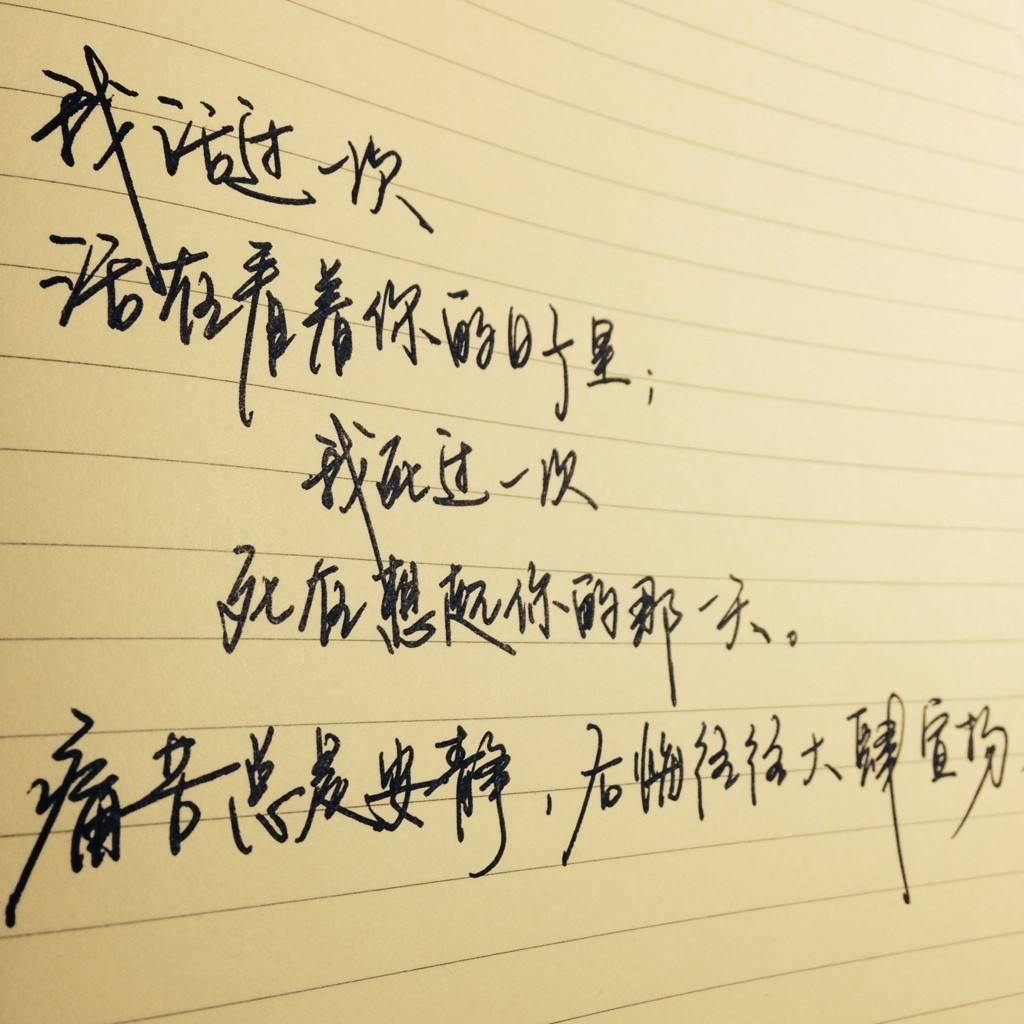 我活过一次
活在看着你的时星；
我死过一次
死在想起你的那一天。
痛苦总是安静，后悔往往大肆宣扬